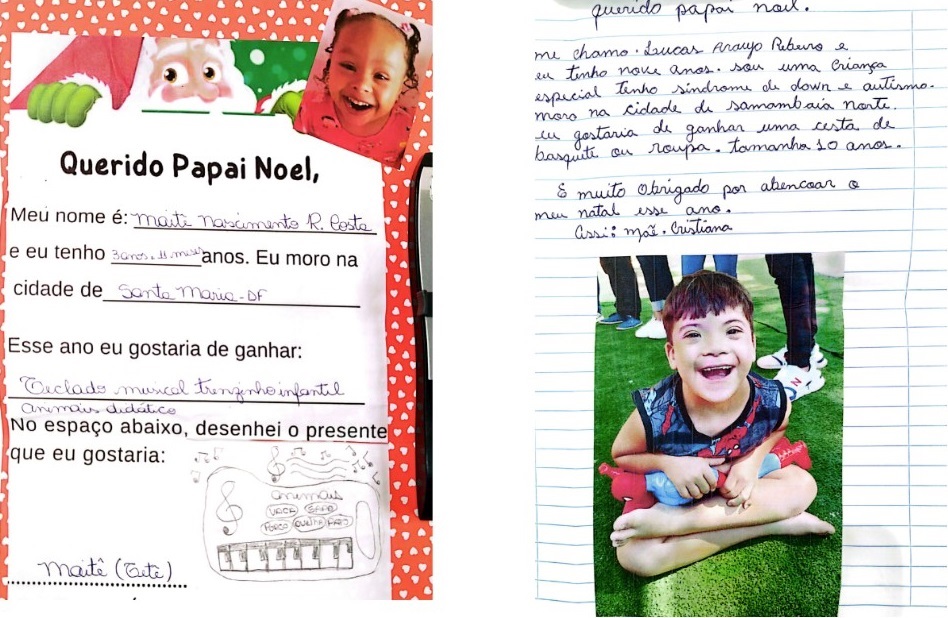 Querido Papai Noel,
Meu nome é: Maitê Nascimento R. Costa
e eu tenho 3 anos e 11 meses anos. Eu moro na
cidade de Santa Maria-DF
Esse ano eu gostaria de ganhar:
Teclado musical trenzinho infantil
animais didático
No espaço abaixo, desenhei o presente
que eu gostaria:
animais
VACA SAPO
PORCO OVELHA PATO
Maitê (Tete)
querido papai noel.
me chamo. Lucas Araujo Ribeiro e
eu tenho nove anos. sou uma criança
especial tenho síndrome de down e autismo.
moro na cidade de samambaia norte.
eu gostaria de ganhar uma cesta de
basquite ou roupa. tamanho 10 anos.
E muito obrigado por abencoar o
meu natal esse ano.
Assi: mãe. Cristiana